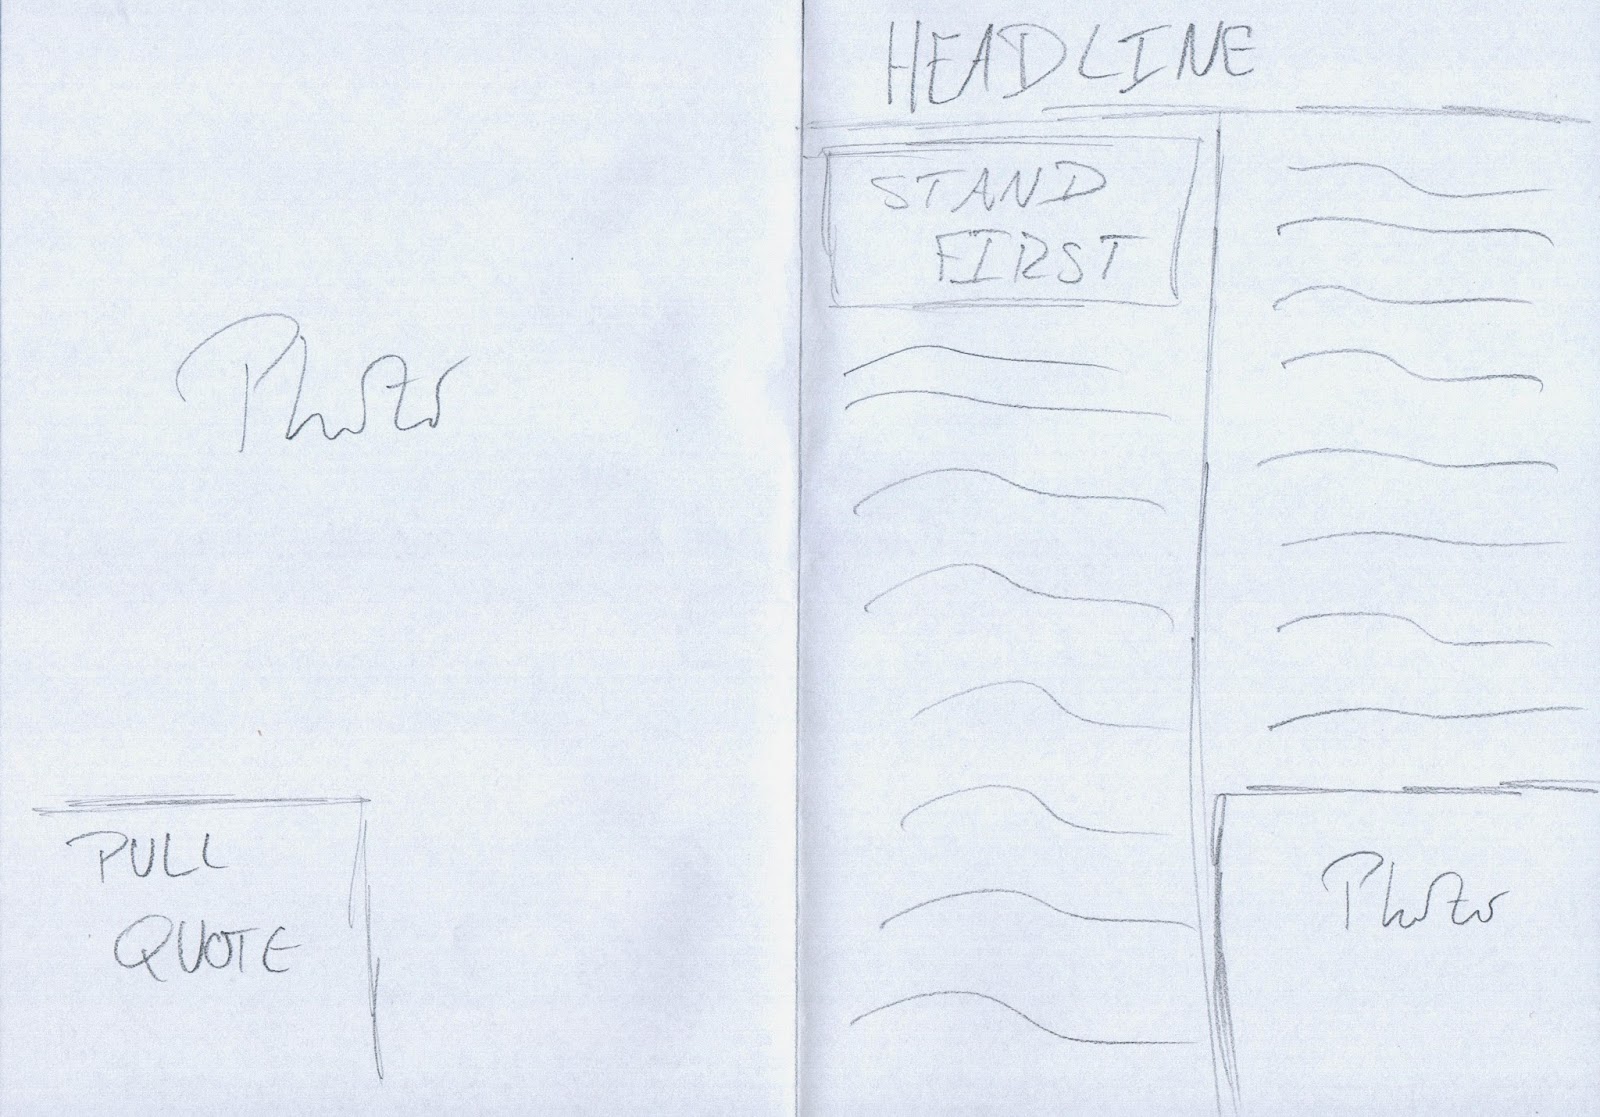 Photo
PULL
QUOTE
HEADLINE
STAND
FIRST
Photo